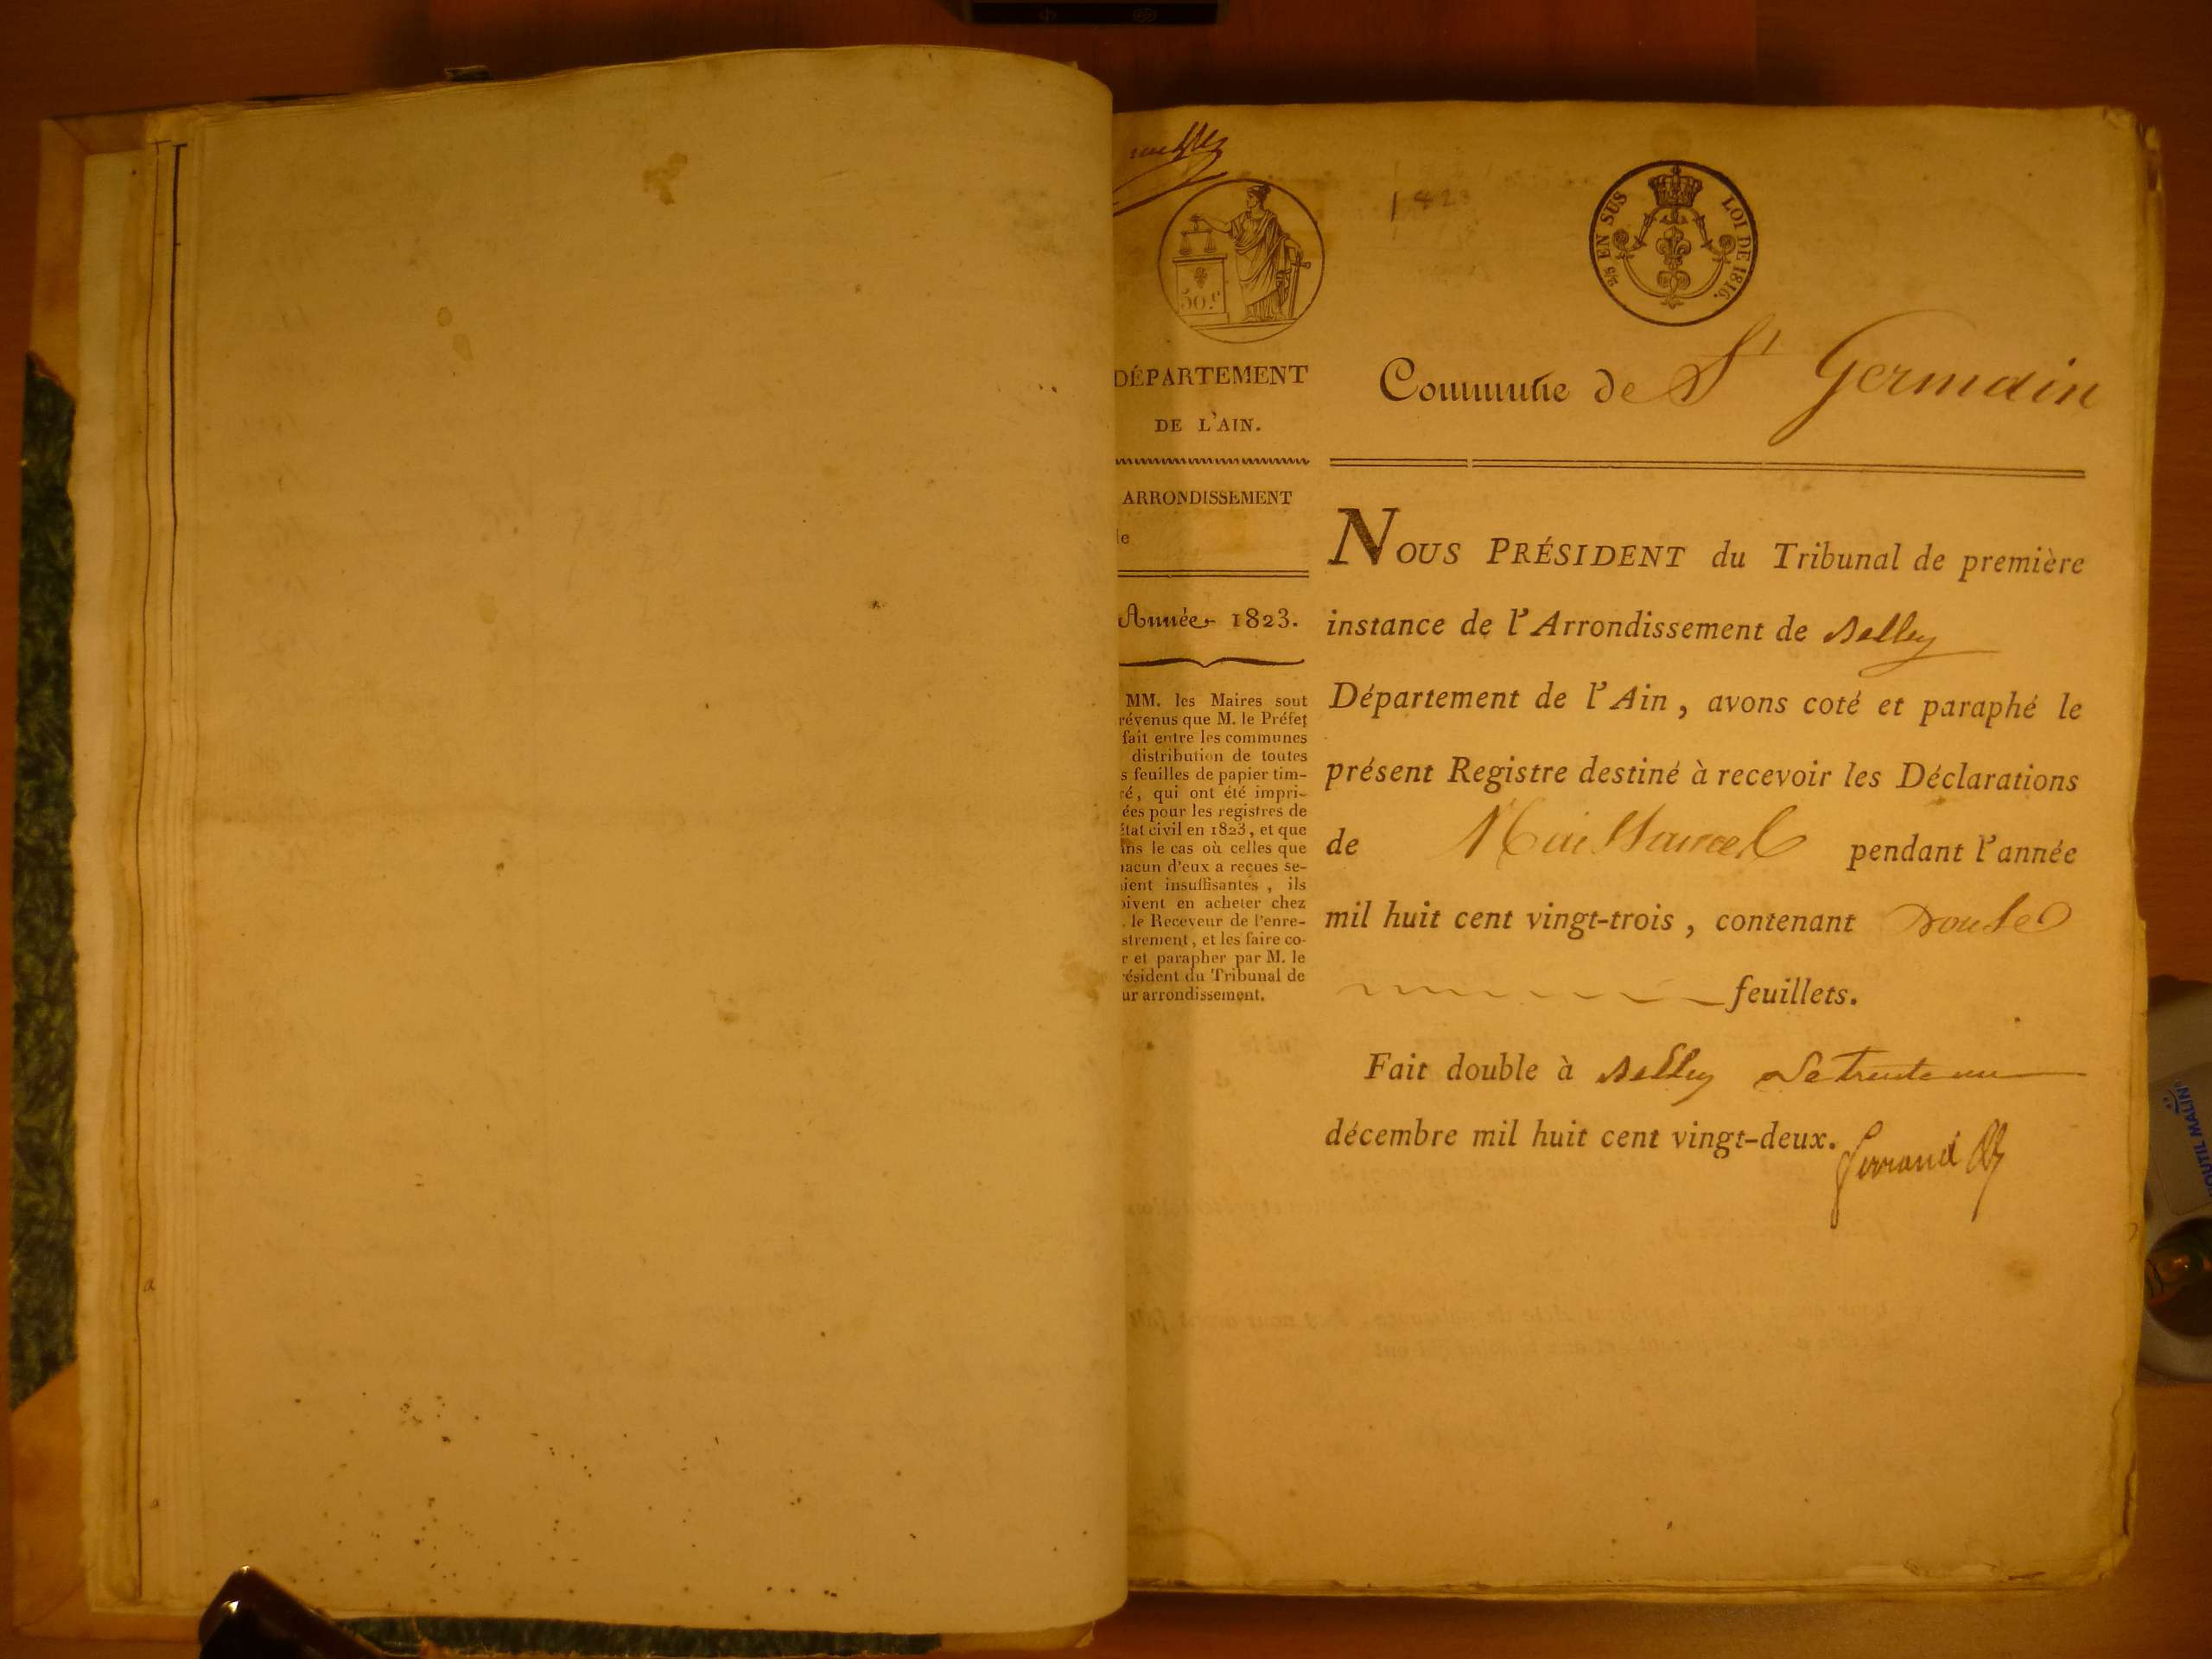 1823
50.c
2/5 EN SUS LOI DE 1816.
DÉPARTEMENT
DE L'AIN.
ARRONDISSEMENT
le
Année 1823.
MM. les Maires sont
révenus que M. le Préfet
fait entre les communes
distribution de toutes
s feuilles de papier tim-
ré, qui ont été impri-
ées pour les registres de
état civil en 1823, et que
ans le cas où celles que
hacun d'eux a reçues se-
aient insuffisantes, ils
oivent en acheter chez
. le Receveur de l'enre-
strement, et les faire co-
r et parapher par M. le
résident du Tribunal de
ur arrondissement.
Commune de St Germain
NOUS PRÉSIDENT du Tribunal de première
instance de l'Arrondissement de Belley
Département de l'Ain, avons coté et paraphé le
présent Registre destiné à recevoir les Déclarations
de Naissances pendant l'année
mil huit cent vingt-trois, contenant Douze
feuillets.
Fait double à Belley Le trente un
décembre mil huit cent vingt-deux.
OUTIL MALIN